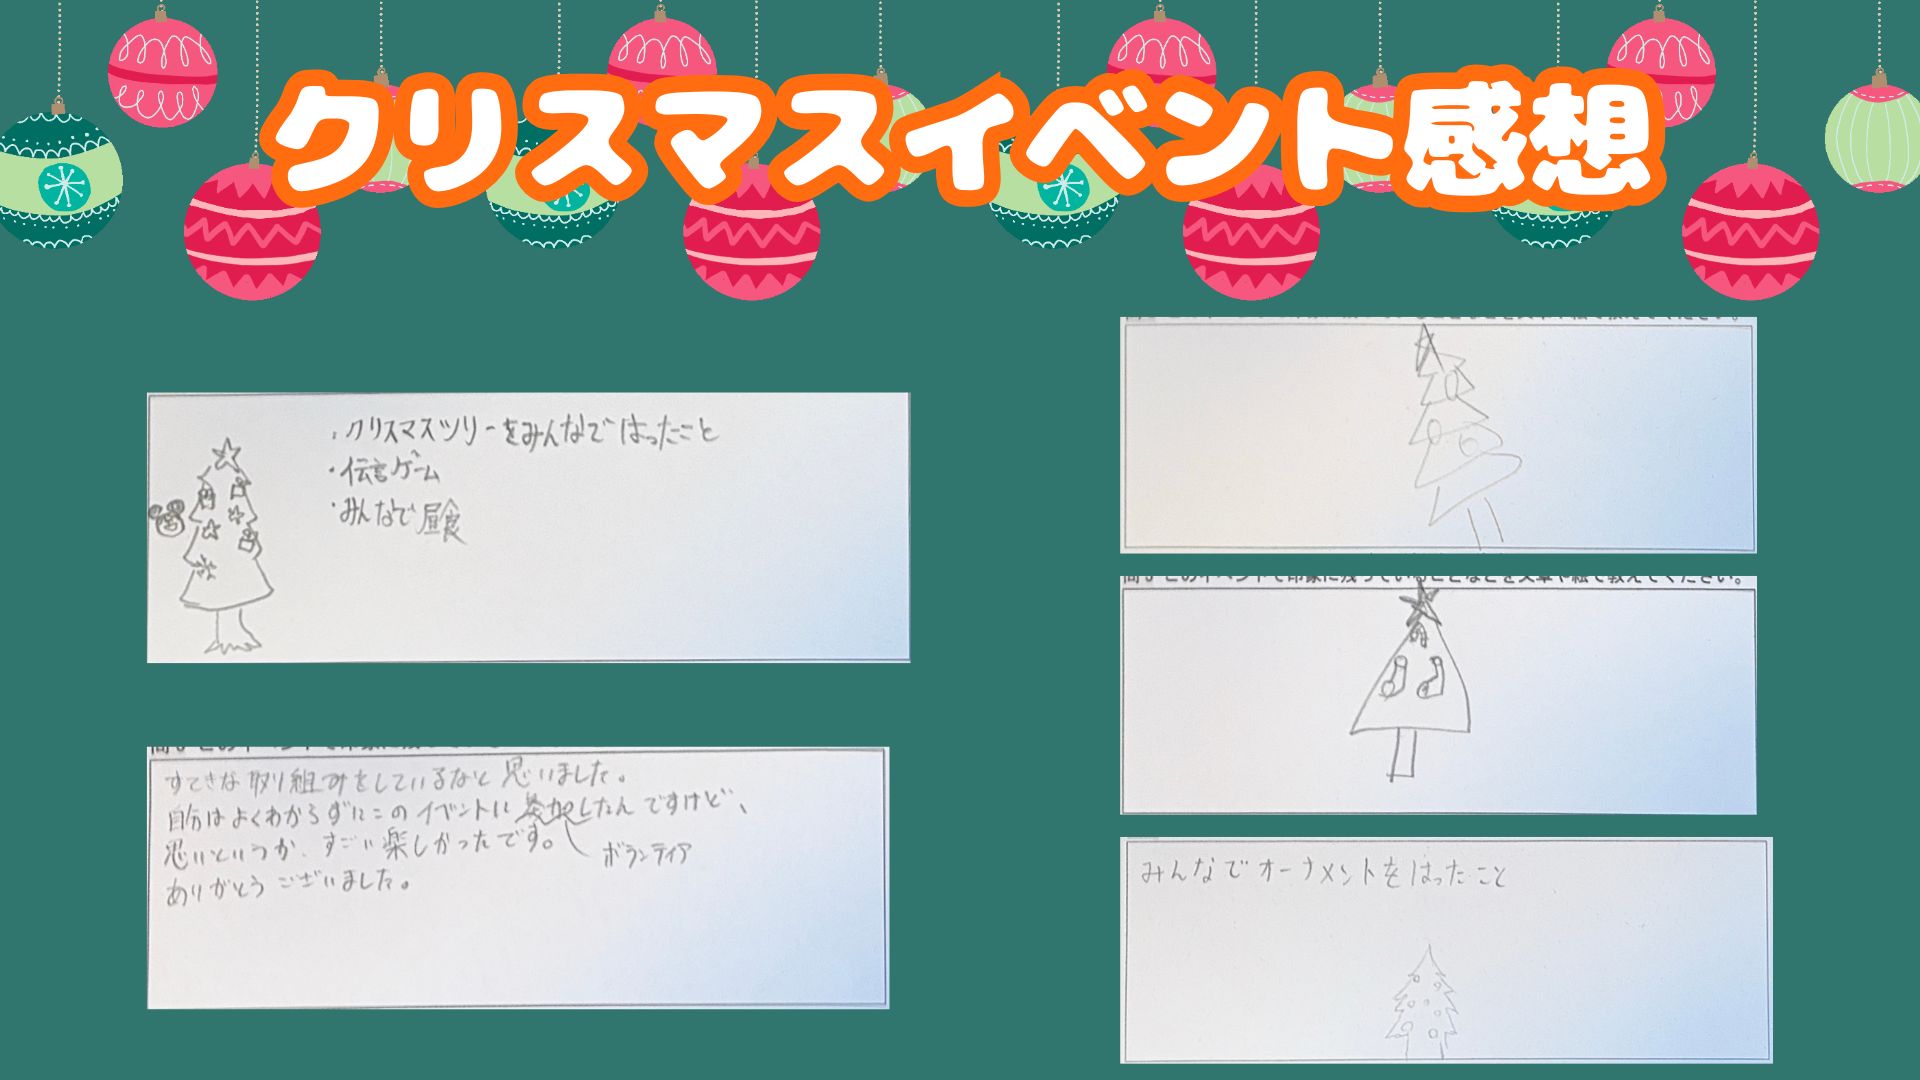 クリスマスイベント感想
・クリスマスツリーをみんなではったこと
・伝言ゲーム
・みんなで昼食
すてきな取り組みをしているなと思いました。
自分はよくわからずにこのイベントに参加したんですけど、
思いというか、すごい楽しかったです。
ボランティア
ありがとうございました。
このイベントで印象に残っていることなどを文章や絵で教えてください。
みんなでオーナメントをはったこと